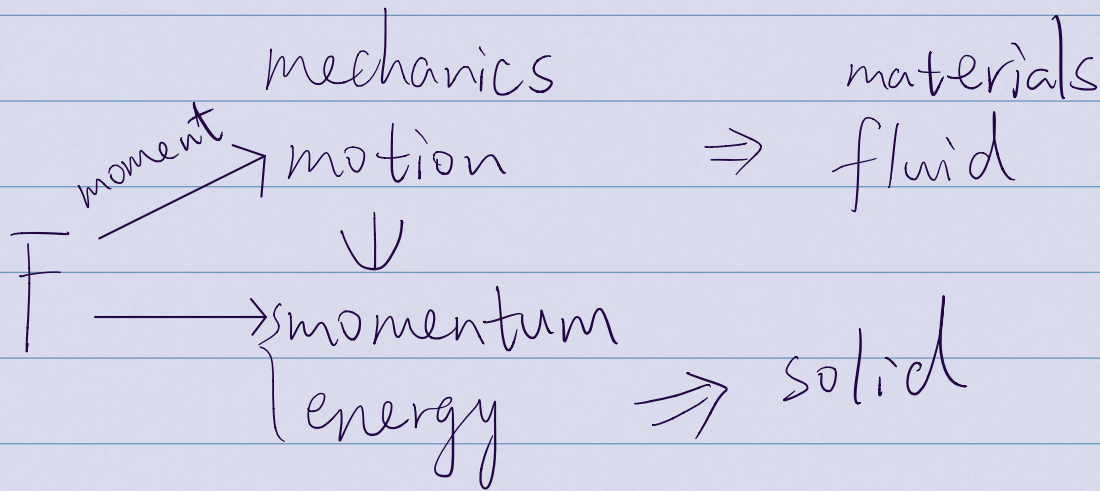 mechanics materials
moment
motion ⇒ fluid
F
momentum
energy ⇒ solid